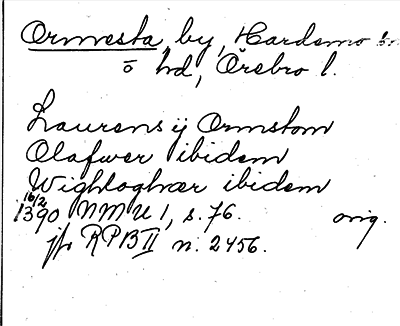 Ormesta by, Hardemo sn
o hd, Örebro l.
Laurens ij Ormstom
Olafwer ibidem
Wighloghær ibidem
16/2
1390 NMU 1, s. 76. orig.
jfr RPB II n. 2456.